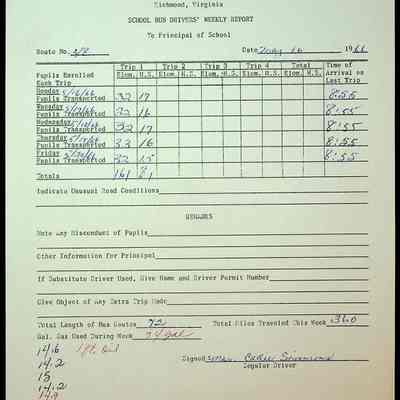 Richmond, Virginia
SCHOOL BUS DRIVERS' WEEKLY REPORT
To Principal of School
Route No. Date May 16 1966
Trip 1 Trip 2 Trip 3 Trip 4 Total Time of
Pupils Enrolled Elem. H.S. Elem. H.S. Elem. H.S. Elem. H.S. Elem. H.S. Arrival on
Each Trip Last Trip
Monday 5/16/66
Pupils Transported 32 17 8:55
Tuesday 5/17/66
Pupils Transported 32 16 8:55
Wednesday 5/18/66
Pupils Transported 32 17 8:55
Thursday 5/19/66
Pupils Transported 33 16 8:55
Friday 5/20/66
Pupils Transported 32 15 8:55
Totals 161 81
Indicate Unusual Road Conditions
REMARKS
Note Any Misconduct of Pupils
Other Information for Principal
If Substitute Driver Used, Give Name and Driver Permit Number
Give Object of Any Extra Trip Made
Total Length of Bus Routes 72 Total Miles Traveled This Week 360
Gal. Gas Used During Week 74 gal
14.6 1 qt. Oil
14.2 Signed Mrs. Callie
15 Regular Driver
14.2